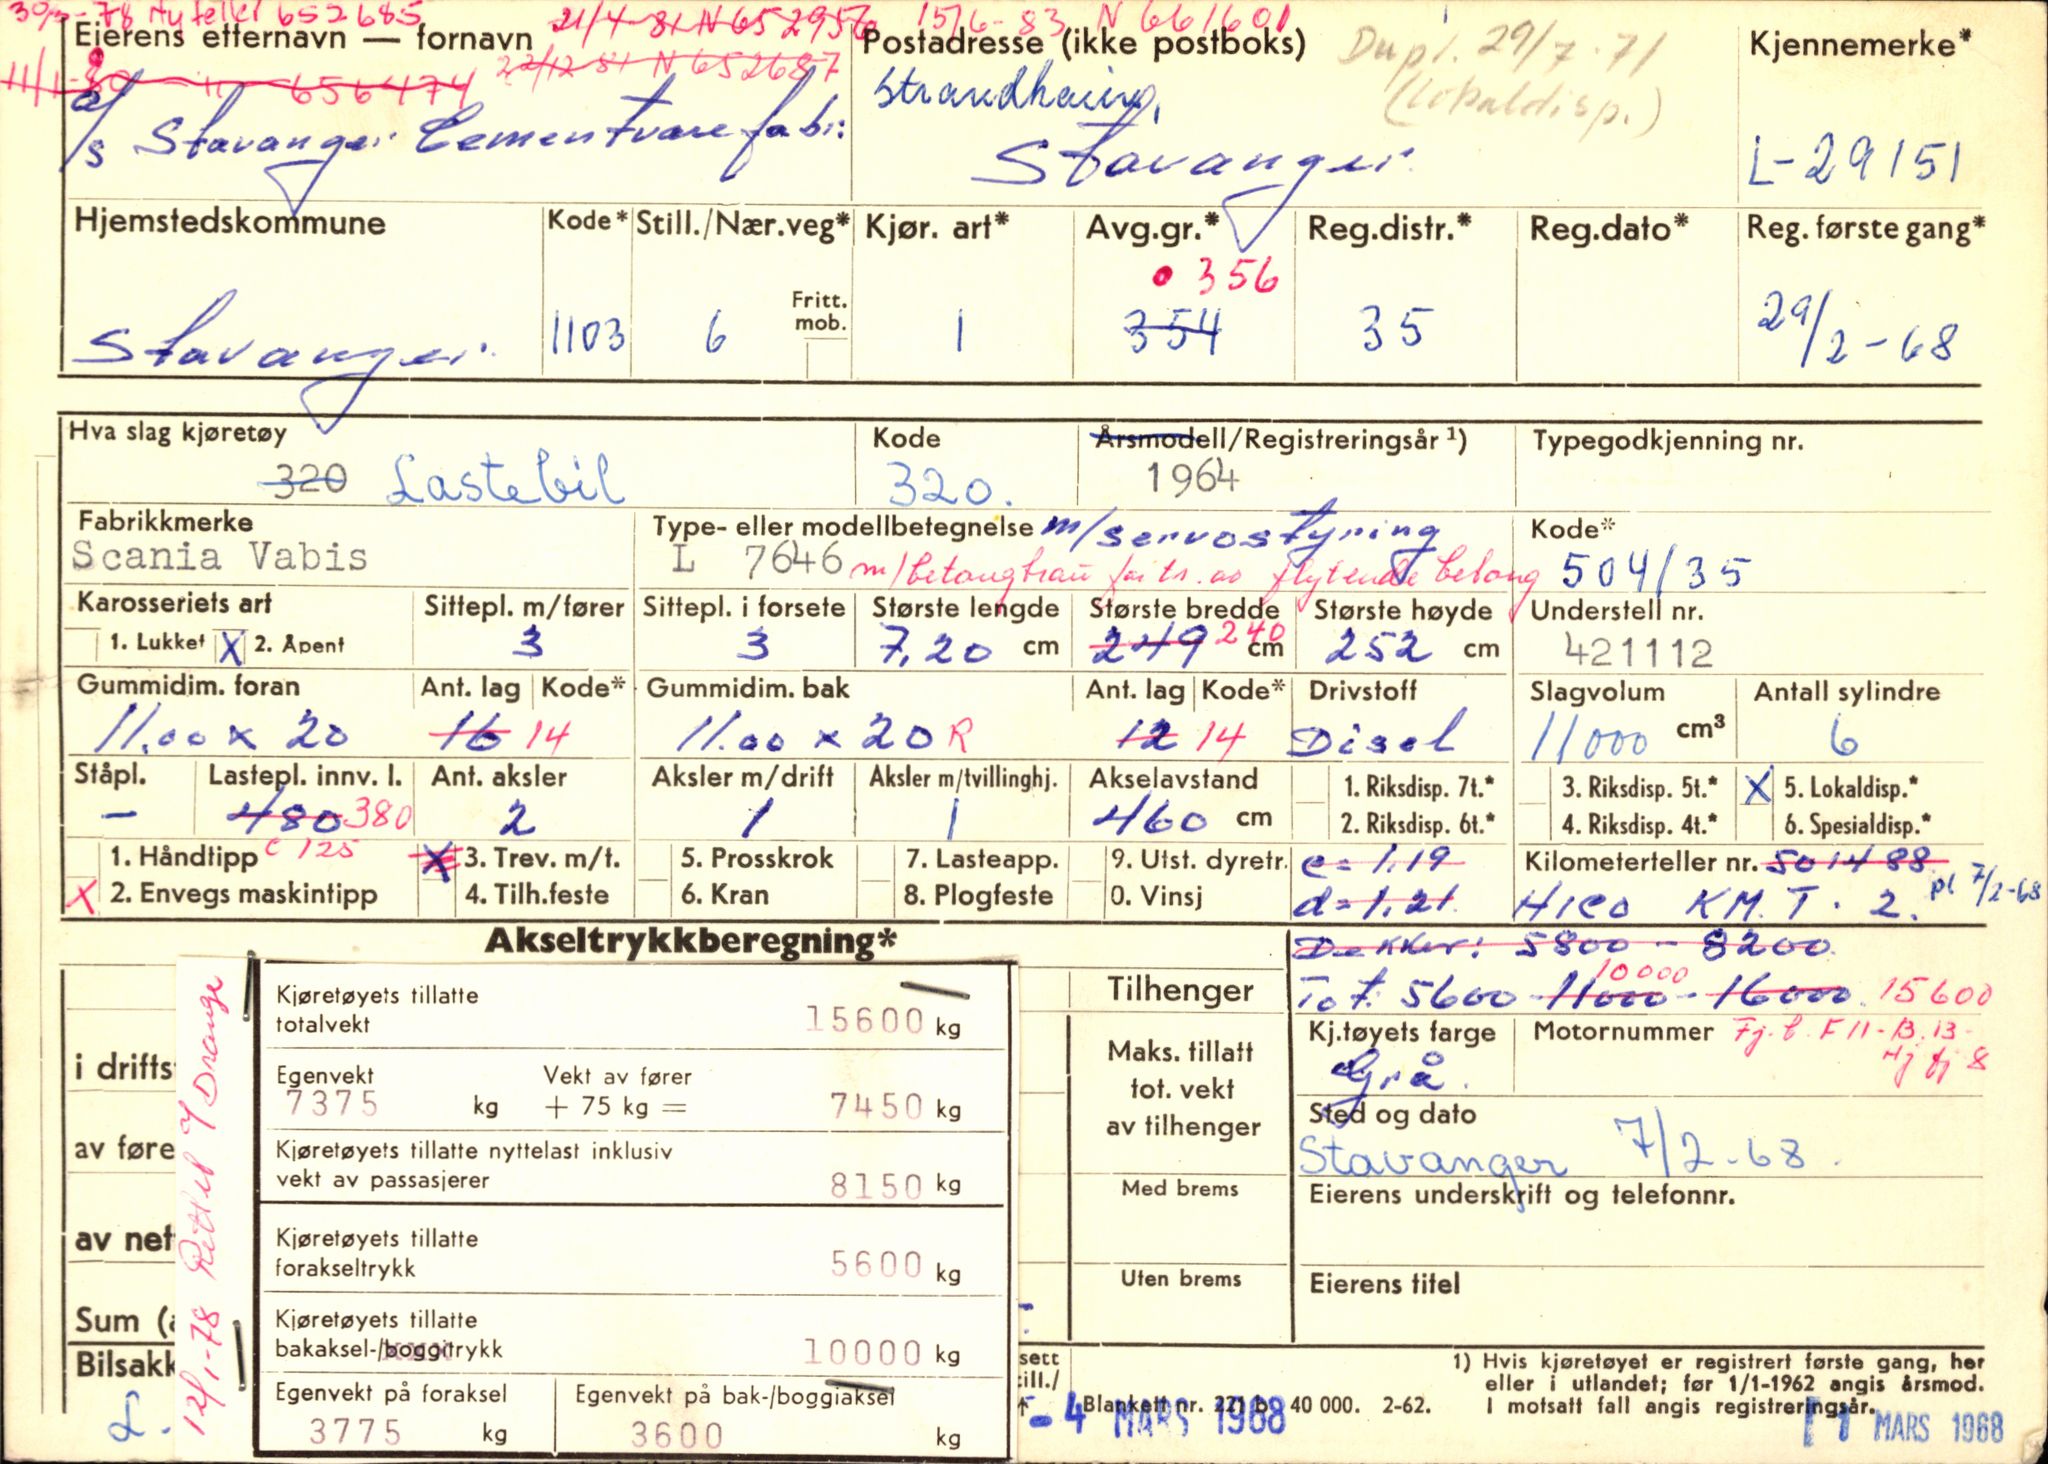 30/3-78 Ny teller 652685 21/4-81 N 652956 15/6-83 N 661601
Eierens etternavn — fornavn Postadresse (ikke postboks) Dupl. 29/7-71 Kjennemerke*
11/1-80 — " — 656474 22/12-81 N 652687 (Lokaldisp.)
Strandhaing,
a/s Stavanger Cementvarefabr: Stavanger. L-29151
Hjemstedskommune Kode* Still./Nær.veg* Kjør. art* Avg.gr.* Reg.distr.* Reg.dato* Reg. første gang*
356
Fritt. mob.
Stavanger. 1103 6 1 354 35 29/2-68
Hva slag kjøretøy Kode Årsmodell/Registreringsår ¹) Typegodkjenning nr.
320 Lastebil 320. 1964
Fabrikkmerke Type- eller modellbetegnelse m/servostyring Kode*
Scania Vabis L 7646 m/betong for tr. av flytende betong 504/35
Karosseriets art Sittepl. m/fører Sittepl. i forsete Største lengde Største bredde Største høyde Understell nr.
1. Lukket X 2. Åpent 3 3 7,20 cm 249 240 cm 252 cm 421112
Gummidim. foran Ant. lag Kode* Gummidim. bak Ant. lag Kode* Drivstoff Slagvolum Antall sylindre
11.00 x 20 16 14 11.00 x 20 R 12 14 Disel 11000 cm³ 6
Ståpl. Lastepl. innv. l. Ant. aksler Aksler m/drift Aksler m/tvillinghj. Akselavstand 1. Riksdisp. 7t.* 3. Riksdisp. 5t.* X 5. Lokaldisp.*
– 480 380 2 1 1 460 cm 2. Riksdisp. 6t.* 4. Riksdisp. 4t.* 6. Spesialdisp.*
1. Håndtipp c 125 X 3. Trev. m/t. 5. Prosskrok 7. Lasteapp. 9. Utst. dyretr. c = 1,19 Kilometerteller nr. 501488
X 2. Envegs maskintipp 4. Tilh.feste 6. Kran 8. Plogfeste 0. Vinsj d = 1,21 Hico KM.T. 2. pl 7/2-68
Akseltrykkberegning* Dekker: 5800 - 8200
10000
Tilhenger Tot: 5600 - 11000 - 16000 15600
Kjøretøyets tillatte totalvekt 15600 kg
Kj.tøyets farge Motornummer Fj. b. F 11-B.13-
Grå.
i drifts
Maks. tillatt tot. vekt av tilhenger
Egenvekt Vekt av fører
7375 kg + 75 kg = 7450 kg
Sted og dato
av føre
Stavanger 7/2-68.
Kjøretøyets tillatte nyttelast inklusiv
vekt av passasjerer 8150 kg
Med brems
Eierens underskrift og telefonnr.
av net
Kjøretøyets tillatte
forakseltrykk 5600 kg
Uten brems Eierens titel
Sum (a
Kjøretøyets tillatte
bakaksel-/boggitrykk 10000 kg
Bilsakk
Egenvekt på foraksel Egenvekt på bak-/boggiaksel
3775 kg 3600 kg
12/1-78 Rettet Drange
sett
ill./
Blankett nr. 221 b. 40 000. 2-62.
1) Hvis kjøretøyet er registrert første gang, her
eller i utlandet; før 1/1-1962 angis årsmod.
I motsatt fall angis registreringsår.
- 4 MARS 1968
11 MARS 1968